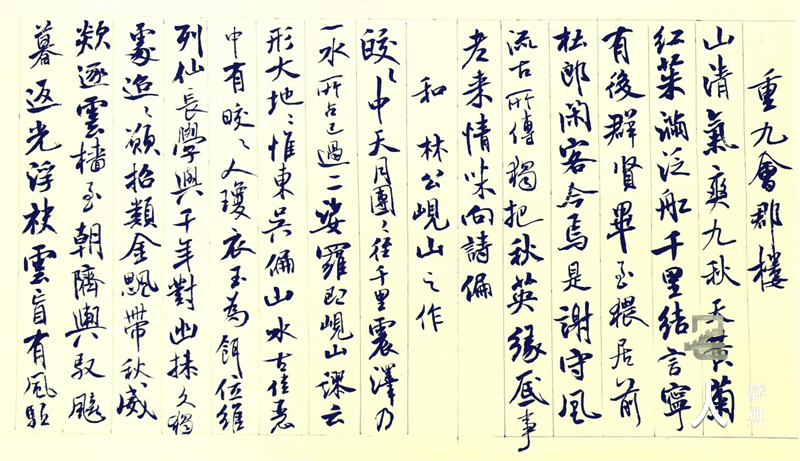 重九會郡樓
山清氣爽九秋天黃菊
紅茱滿泛船千里結言寧
有後群賢畢至猥居前
杜郎閑客今焉是謝守風
流古所傳獨把秋英緣底事
老來情味向詩偏
和林公峴山之作
皎〻中天月團〻徑千里震澤乃
一水所占已過二娑羅即峴山謬云
形大地〻惟東吳偏山水古佳麗
中有皎〻人瓊衣玉為餌位維
列仙長學與千年對幽操久獨
處迢〻願招類金飈帶秋威
欻逐雲檣至朝隮輿馭飈
暮返光浮袂雲盲有風驅
辞典